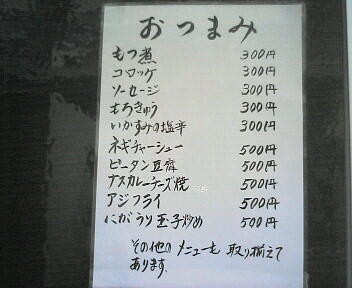 おつまみ
もつ煮 300円
コロッケ 300円
ソーセージ 300円
もろきゅう 300円
いかすみの塩辛 300円
ネギチャーシュー 500円
ピータン豆腐 500円
ナスカレーチーズ焼 500円
アジフライ 500円
にがうり玉子炒め 500円
その他のメニューも取り揃えて
あります.